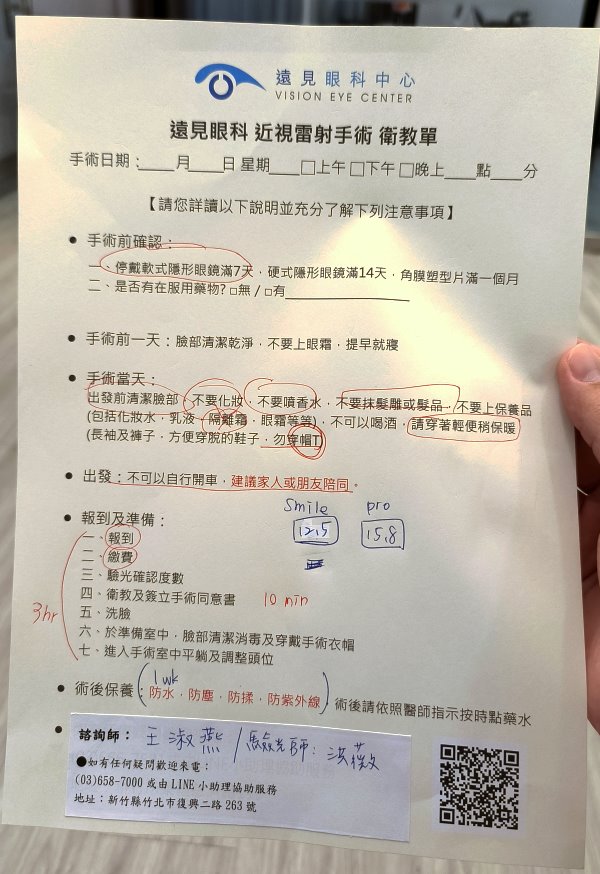 遠見眼科中心
VISION EYE CENTER
遠見眼科 近視雷射手術 衛教單
手術日期:____月____日 星期____□上午 □下午 □晚上____點____分
【請您詳讀以下說明並充分了解下列注意事項】
● 手術前確認:
一、停戴軟式隱形眼鏡滿7天,硬式隱形眼鏡滿14天,角膜塑型片滿一個月
二、是否有在服用藥物?□無 / □有________________
● 手術前一天:臉部清潔乾淨,不要上眼霜,提早就寢
● 手術當天:
出發前清潔臉部,不要化妝,不要噴香水,不要抹髮雕或髮品,不要上保養品
(包括化妝水,乳液,隔離霜,眼霜等等),不可以喝酒,請穿著輕便稍保暖
(長袖及褲子,方便穿脫的鞋子,勿穿帽T)
● 出發:不可以自行開車,建議家人或朋友陪同。
smile pro
12.5 15.8
● 報到及準備:
一、報到
二、繳費
三、驗光確認度數
四、衛教及簽立手術同意書 10 min
五、洗臉
3hr
六、於準備室中,臉部清潔消毒及穿戴手術衣帽
七、進入手術室中平躺及調整頭位
1 wk
● 術後保養:(防水,防塵,防揉,防紫外線),術後請依照醫師指示按時點藥水
諮詢師: 王淑燕 / 驗光師: 洪薇
●如有任何疑問歡迎來電:
(03)658-7000 或由 LINE 小助理協助服務
地址:新竹縣竹北市復興二路 263 號